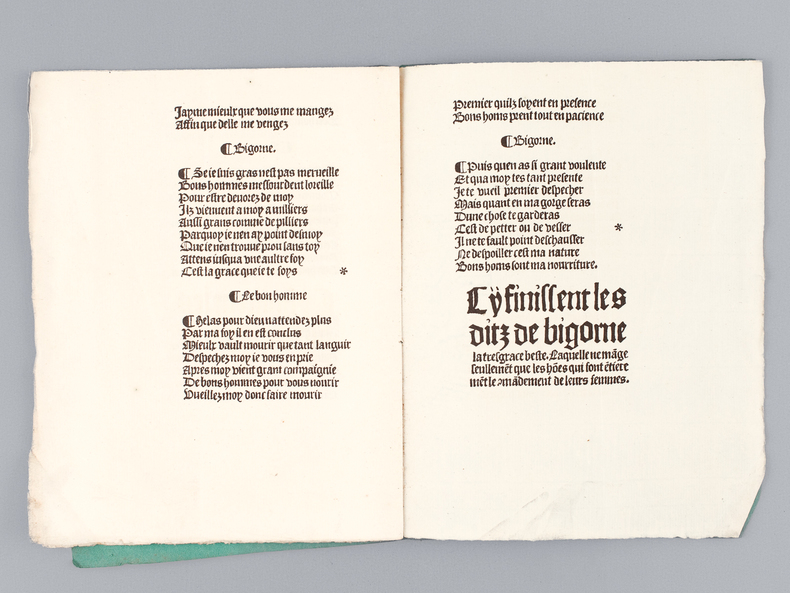 Jayme mieulx que vous me mangez
Affin que delle me vengez
¶ Bigorne.
¶ Se ie suis gras nest pas merueille
Bons hommes me sourdent loreille
Pour estre deuorez de moy
Ilz viennent a moy a milliers
Aussi grans comme de pilliers
Parquoy ie nen ay point desmoy
Que ie nen trouue prou sans toy
Attens iusqua vne aultre foy
Cest la grace que ie te foys *
¶ Le bon homme
¶ Helas pour dieu nattendez plus
Par ma foy il en est conclus
Mieulx vault mourir que tant languir
Despechez moy ie vous en prie
Apres moy vient grant compaignie
De bons hommes pour vous nourir
Vueillez moy donc faire mourir
Premier quilz soyent en presence
Bons homs prent tout en pacience
¶ Bigorne.
¶ Puis quen as si grant voulente
Et qua moy tes tant presente
Je te vueil premier despecher
Mais quant en ma gorge seras
Dune chose te garderas
Cest de petter ou de vesser *
Il ne te fault point deschausser
Ne despoiller cest ma nature
Bons homs sont ma nourriture.
Cy finissent les
ditz de bigorne
la tresgrace beste. Laquelle ne mãge
seullemẽt que les hões qui sont ẽtiere
mẽt le ꝯmãdement de leurs femmes.